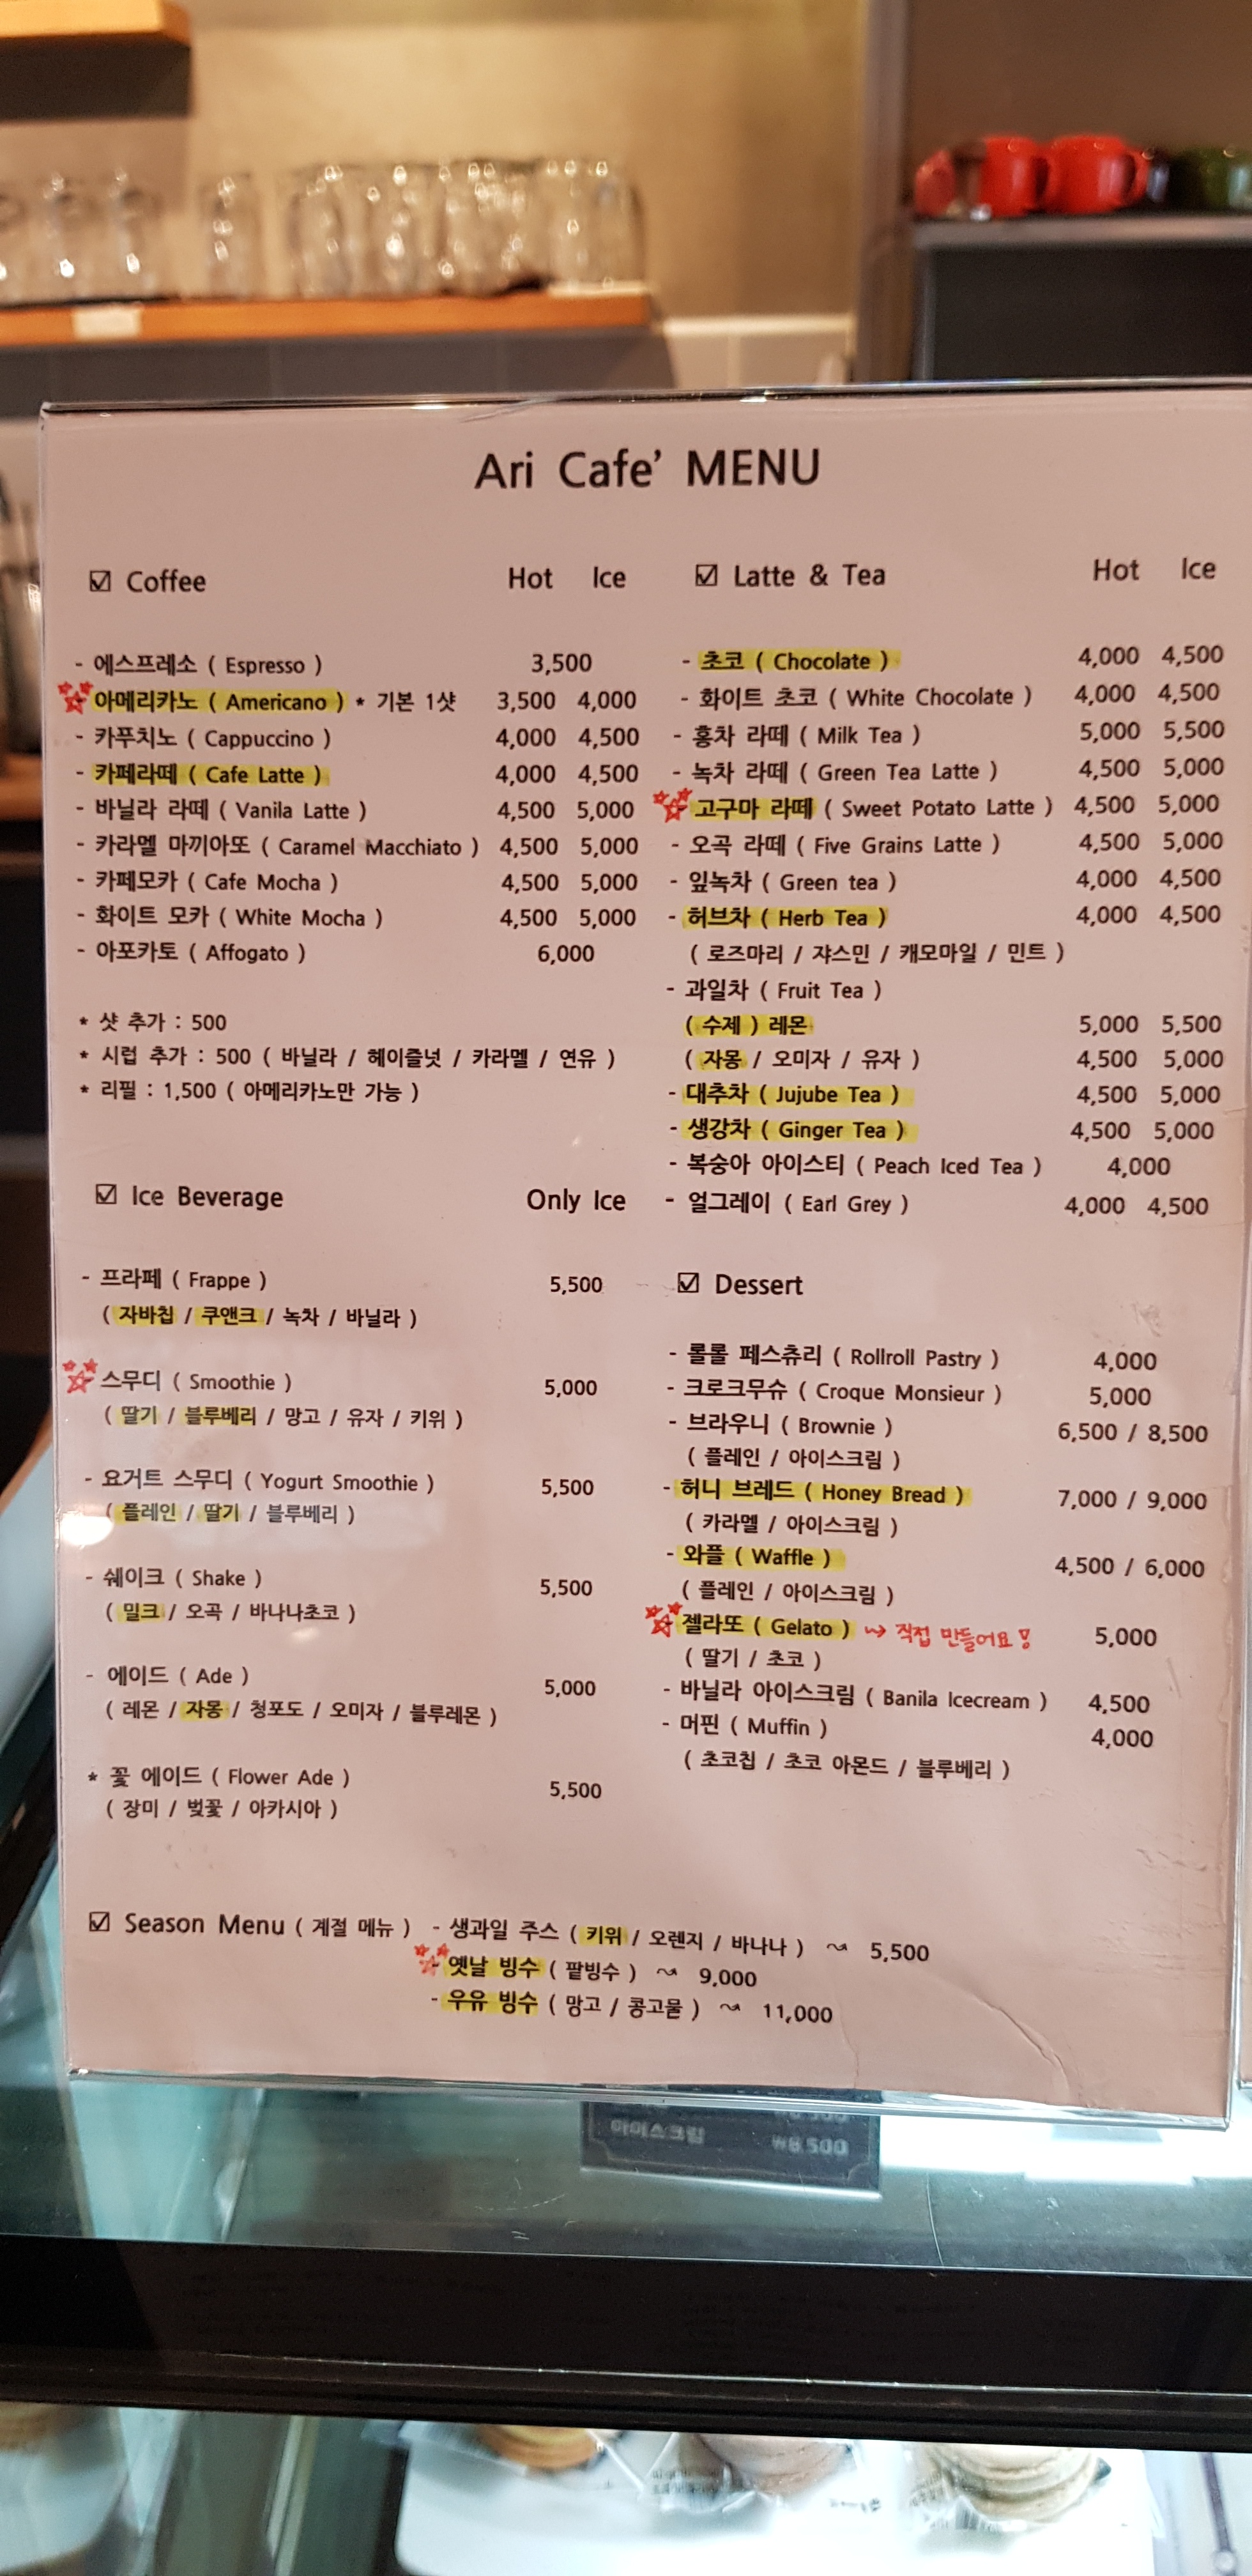 Ari Cafe’ MENU
☑ Coffee Hot Ice
- 에스프레소 ( Espresso ) 3,500
아메리카노 ( Americano ) * 기본 1샷 3,500 4,000
- 카푸치노 ( Cappuccino ) 4,000 4,500
- 카페라떼 ( Cafe Latte ) 4,000 4,500
- 바닐라 라떼 ( Vanila Latte ) 4,500 5,000
- 카라멜 마끼아또 ( Caramel Macchiato ) 4,500 5,000
- 카페모카 ( Cafe Mocha ) 4,500 5,000
- 화이트 모카 ( White Mocha ) 4,500 5,000
- 아포카토 ( Affogato ) 6,000
* 샷 추가 : 500
* 시럽 추가 : 500 ( 바닐라 / 헤이즐넛 / 카라멜 / 연유 )
* 리필 : 1,500 ( 아메리카노만 가능 )
☑ Ice Beverage Only Ice
- 프라페 ( Frappe ) 5,500
( 자바칩 / 쿠앤크 / 녹차 / 바닐라 )
스무디 ( Smoothie ) 5,000
( 딸기 / 블루베리 / 망고 / 유자 / 키위 )
- 요거트 스무디 ( Yogurt Smoothie ) 5,500
( 플레인 / 딸기 / 블루베리 )
- 쉐이크 ( Shake ) 5,500
( 밀크 / 오곡 / 바나나초코 )
- 에이드 ( Ade ) 5,000
( 레몬 / 자몽 / 청포도 / 오미자 / 블루레몬 )
* 꽃 에이드 ( Flower Ade ) 5,500
( 장미 / 벚꽃 / 아카시아 )
☑ Latte & Tea Hot Ice
- 초코 ( Chocolate ) 4,000 4,500
- 화이트 초코 ( White Chocolate ) 4,000 4,500
- 홍차 라떼 ( Milk Tea ) 5,000 5,500
- 녹차 라떼 ( Green Tea Latte ) 4,500 5,000
고구마 라떼 ( Sweet Potato Latte ) 4,500 5,000
- 오곡 라떼 ( Five Grains Latte ) 4,500 5,000
- 잎녹차 ( Green tea ) 4,000 4,500
- 허브차 ( Herb Tea ) 4,000 4,500
( 로즈마리 / 쟈스민 / 캐모마일 / 민트 )
- 과일차 ( Fruit Tea )
( 수제 ) 레몬 5,000 5,500
( 자몽 / 오미자 / 유자 ) 4,500 5,000
- 대추차 ( Jujube Tea ) 4,500 5,000
- 생강차 ( Ginger Tea ) 4,500 5,000
- 복숭아 아이스티 ( Peach Iced Tea ) 4,000
- 얼그레이 ( Earl Grey ) 4,000 4,500
☑ Dessert
- 롤롤 페스츄리 ( Rollroll Pastry ) 4,000
- 크로크무슈 ( Croque Monsieur ) 5,000
- 브라우니 ( Brownie ) 6,500 / 8,500
( 플레인 / 아이스크림 )
- 허니 브레드 ( Honey Bread ) 7,000 / 9,000
( 카라멜 / 아이스크림 )
- 와플 ( Waffle ) 4,500 / 6,000
( 플레인 / 아이스크림 )
젤라또 ( Gelato ) 직접 만들어요! 5,000
( 딸기 / 초코 )
- 바닐라 아이스크림 ( Banila Icecream ) 4,500
- 머핀 ( Muffin ) 4,000
( 초코칩 / 초코 아몬드 / 블루베리 )
☑ Season Menu ( 계절 메뉴 ) - 생과일 주스 ( 키위 / 오렌지 / 바나나 ) ~ 5,500
옛날 빙수 ( 팥빙수 ) ~ 9,000
- 우유 빙수 ( 망고 / 콩고물 ) ~ 11,000
아이스크림 ₩8,500